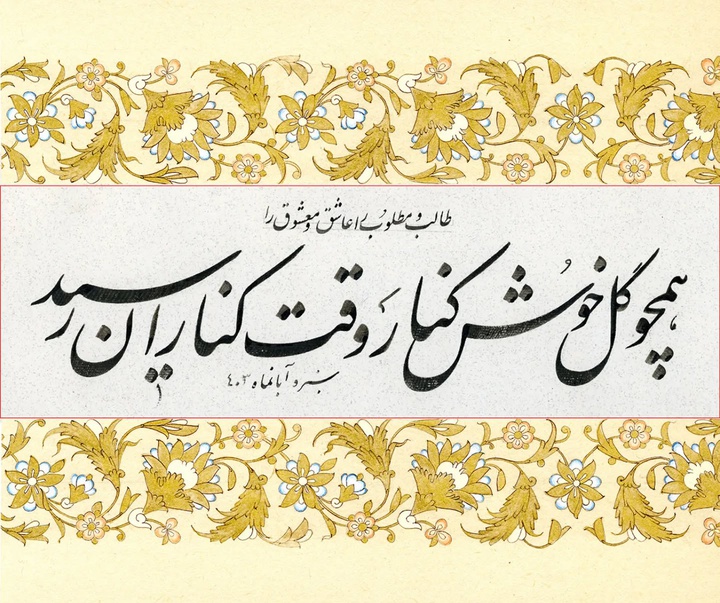 طالب و مطلوب را عاشق و معشوق را
همچو گل خوش کنار وقت کناران رسید
آبانماه ۴۰۳